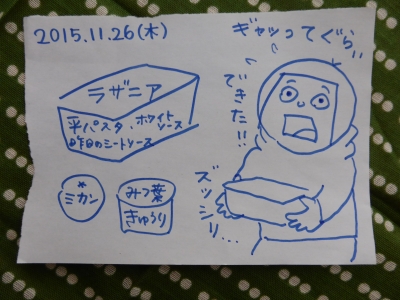 2015.11.26(木)
ギャッってぐらい
できた!!
ラザニア
平パスタ・ホワイト
ソース
昨日のミートソース
ミカン
みつ葉
きゅうり
ズッシリ…